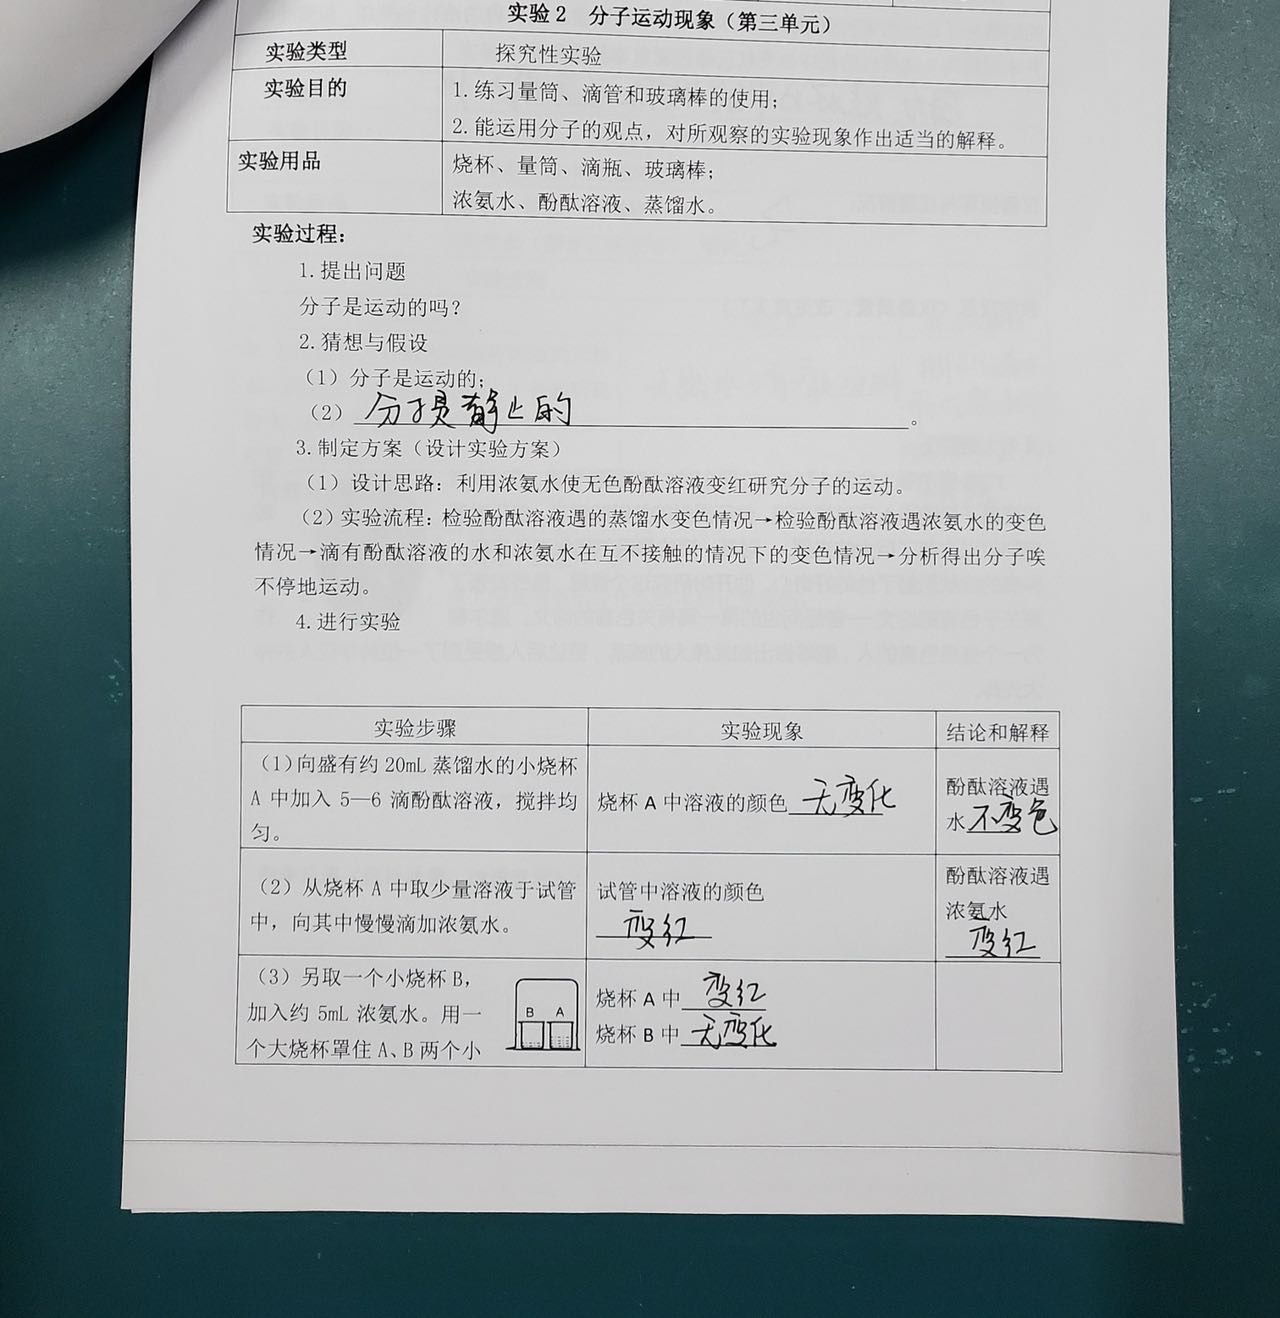 实验2 分子运动现象（第三单元）
实验类型 探究性实验
实验目的 1.练习量筒、滴管和玻璃棒的使用；
2.能运用分子的观点，对所观察的实验现象作出适当的解释。
实验用品 烧杯、量筒、滴瓶、玻璃棒；
浓氨水、酚酞溶液、蒸馏水。
实验过程：
1.提出问题
分子是运动的吗？
2.猜想与假设
（1）分子是运动的；
（2）分子是静止的。
3.制定方案（设计实验方案）
（1）设计思路：利用浓氨水使无色酚酞溶液变红研究分子的运动。
（2）实验流程：检验酚酞溶液遇的蒸馏水变色情况→检验酚酞溶液遇浓氨水的变色
情况→滴有酚酞溶液的水和浓氨水在互不接触的情况下的变色情况→分析得出分子唉
不停地运动。
4.进行实验
实验步骤 实验现象 结论和解释
（1）向盛有约20mL蒸馏水的小烧杯
A中加入5—6滴酚酞溶液，搅拌均
匀。
烧杯A中溶液的颜色无变化
酚酞溶液遇
水不变色
（2）从烧杯A中取少量溶液于试管
中，向其中慢慢滴加浓氨水。
试管中溶液的颜色
变红
酚酞溶液遇
浓氨水
变红
（3）另取一个小烧杯B，
加入约5mL浓氨水。用一
个大烧杯罩住A、B两个小
B A
烧杯A中变红
烧杯B中无变化